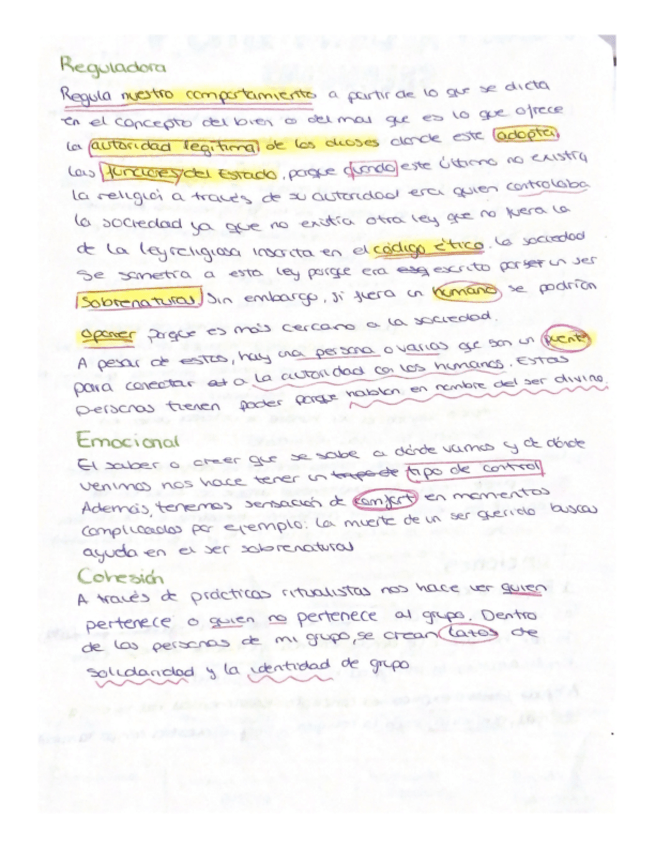 Reguladora
Regula nuestro comportamiento a partir de lo que se dicta
en el concepto del bien o del mal que es lo que ofrece
la autoridad legítima de los dioses donde este adopta
las funciones del Estado, porque cuando este último no existía
la religión a través de su autoridad era quien controlaba
la sociedad ya que no existía otra ley que no fuera la
de la ley religiosa inscrita en el código ético. La sociedad
se sometía a esta ley porque era escrito por ser un ser
sobrenatural. Sin embargo, si fuera un humano se podrían
oponer porque es más cercano a la sociedad.
A pesar de estos, hay una persona o varias que son un puente
para conectar a la autoridad con los humanos. Estas
personas tienen poder porque hablan en nombre del ser divino.
Emocional
El saber o creer que se sabe a dónde vamos y de dónde
venimos nos hace tener un tipo de control
Además, tenemos sensación de comfort en momentos
complicados por ejemplo: la muerte de un ser querido buscas
ayuda en el ser sobrenatural
Cohesión
A través de prácticas ritualistas nos hace ver quien
pertenece o quien no pertenece al grupo. Dentro
de las personas de mi grupo, se crean lazos de
solidaridad y la identidad de grupo